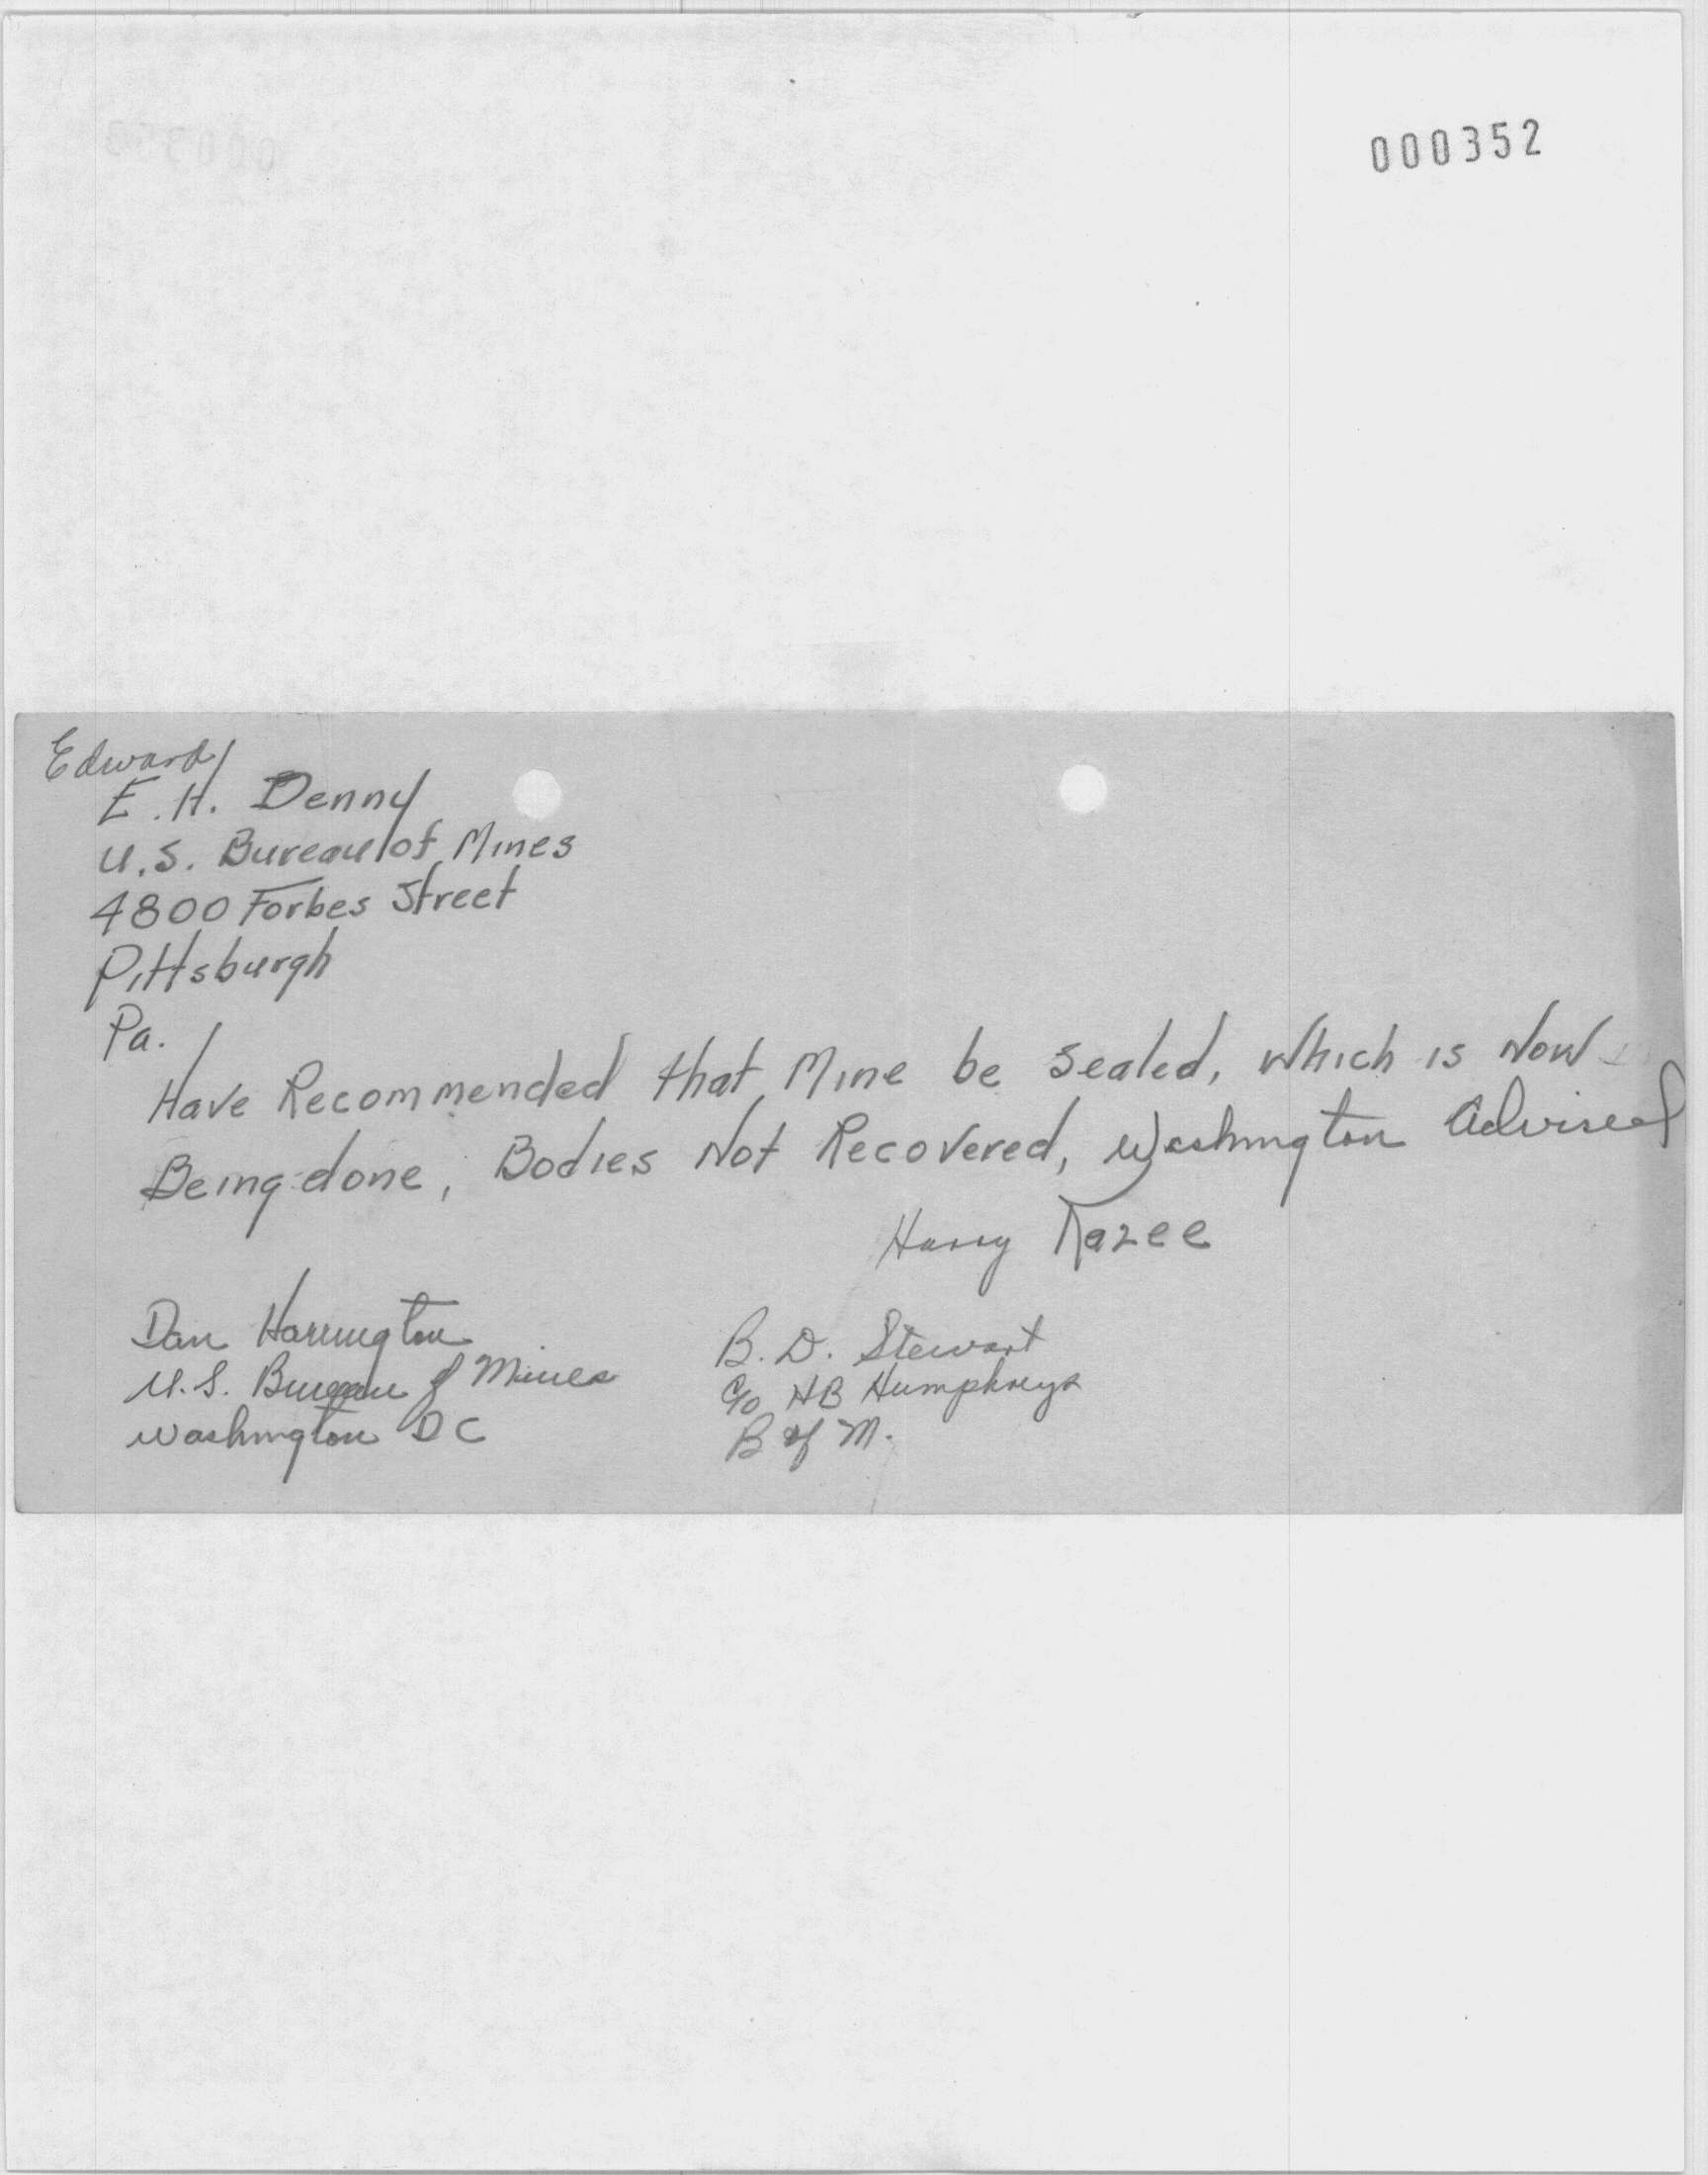 000352
Edward
E. H. Denny
U.S. Bureau of Mines
4800 Forbes Street
Pittsburgh
Pa.
Have Recommended that Mine be Sealed, Which is Now
Being done, Bodies Not Recovered, Washington Advised
Harry Kazee
Dan Harrington
U.S. Bureau of Mines
Washington DC
B. D. Stewart
c/o HB Humphreys
B of M.